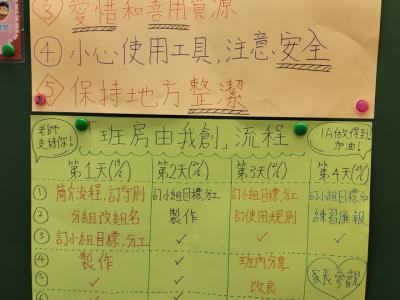 ③ 愛惜和善用資源
④ 小心使用工具,注意安全
⑤ 保持地方整潔
老師支持你!
「班房由我創」流程
1A做得到!加油!
第1天 第2天 第3天 第4天
① 簡介流程,訂守則 訂小組目標,分工 訂小組目標,分工 訂小組目標,分工
② 分組改組名 製作 訂使用規則 練習匯報
③ 訂小組目標,分工 ✓ ✓ ✓
④ 製作 ✓ 班內分享 家長參觀
⑤ ✓ ✓ 改良